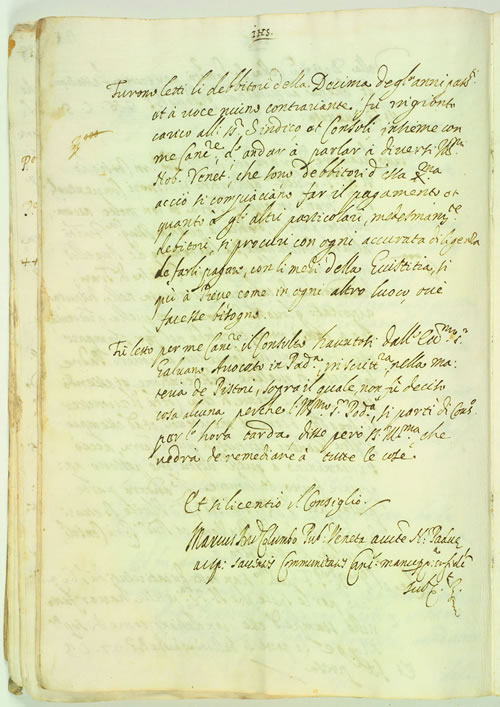 IHS.
Furono letti li debbitori della Decima degl'anni pass.ti
et à voce niuno contraxante, fù ingionto
carico alli SS.ri Sindico et Consoli insieme con
me Canc.e d'andar à parlar à diversi
Nob. Venet. che sono debbitori d'essa X.ma
acciò si compiaciano far il pagamento et
quanto à gl'altri particolari, medesmam.te
debitori, si procuri con ogni accurata diligenza
de farli pagare, con li medi della Giustitia, si
più à Pieve come in ogni altro luoco ove
facesse bisogno.
Fù letto per me Canc.e il Consulto havutosi dall' Ecc.mo S.r
Galvano Avocato in Pad.a in scritt.ra nella ma-
teria de Pistori, sopra il quale, non fù deciso
cosa alcuna perche l' Ill.mo S.r Pod.à si partì di Cons.o
per l'hora tarda. disse però S. S. Ill.ma che
vedrà de remediare à tutte le cose.
Et si licentiò il Consiglio.
Marcus Ant. Columbo Pub. Veneta auct.e Not. Padue
acp. Communitatis Canc. manu pp.a
sub.t